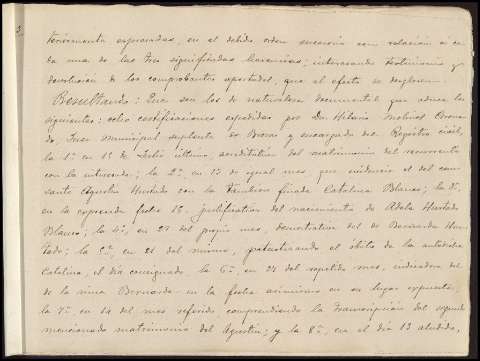 teriormente expresadas, en el debido orden sucesorio con relación á ca-
da una de las tres significadas herencias; interesando testimonio y
devolución de los comprobantes aportados, que al efecto se desglosen.
Resultando: Que son los de naturaleza documental que aduce los
siguientes: ocho certificaciones expedidas por Don Hilario
Juez Municipal suplente de y encargado del Registro civil,
la 1ª en 1º de Julio último, acreditativa del matrimonio del recurrente
con la interesada; la 2ª, en 1º de igual mes que evidencia el del cau-
sante Agustín Hurtado con la también finada Catalina Blanco; la 3ª,
en la expresada fecha 1º, justificativa del nacimiento de Adela Hurtado
Blanco; la 4ª, en 21 del propio mes, demostrativa del de Bernarda Hur-
tado; la 5ª, en 21 del mismo, patentizando el óbito de la antedicha
Catalina, el día consignado, la 6ª, en 21 del repetido mes, indicadora del
de la niña Bernarda en la fecha asimismo en su lugar expuesta;
la 7ª en 14 del mes referido, comprendiendo la transcripción del segundo
mencionado matrimonio del Agustín; y la 8ª, en el día 13 aludido,